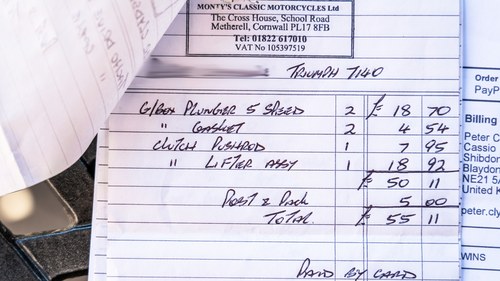 MONTY'S CLASSIC MOTORCYCLES Ltd
The Cross House, School Road
Metherell, Cornwall PL17 8FB
Tel: 01822 617010
VAT No 105397519
TRIUMPH T140
G/BOX PLUNGER 5 SPEED 2 £ 18 70
" GASKET 2 4 54
CLUTCH PUSHROD 1 7 95
" LIFTER ASSY 1 18 92
£ 50 11
POST & PACK 5 00
TOTAL £ 55 11
PAID BY CARD
Order
PayP
Billing
Peter C
Cassio
Shibdon
Blaydon
NE21 5
United K
peter.cly
WINS